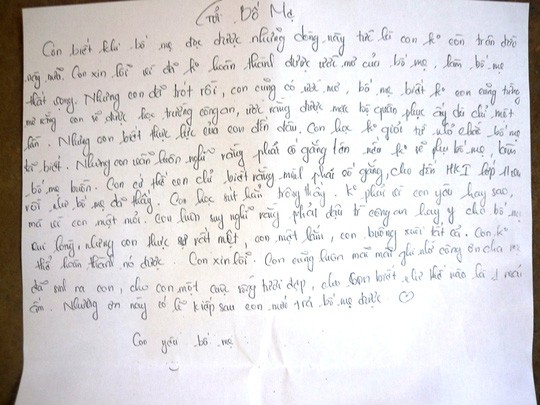 Gửi Bố Mẹ
Con biết khi bố mẹ đọc được những dòng này tức là con ko còn trên đời
này nữa. Con xin lỗi vì đã ko hoàn thành được ước mơ của bố mẹ, làm bố mẹ
thất vọng. Nhưng con đã trót rồi, con cũng có ước mơ, bố mẹ biết ko con cũng từng
mơ rằng con sẽ được học trường công an, ước rằng được mặc bộ quân phục ấy dù chỉ một
lần. Nhưng con biết thực lực của con đến đâu. Con học ko giỏi từ nhỏ chắc bố mẹ
đã biết. Nhưng con vẫn luôn nghĩ rằng phải cố gắng lên nếu ko sẽ phụ bố mẹ, làm
bố mẹ buồn. Con cứ thế con chỉ biết rằng mình phải cố gắng, cho đến HKI lớp 11
rồi như bố mẹ đã thấy. Con học sút hẳn trông thấy. ko phải vì con yêu hay sao
mà vì con mệt mỏi. Con luôn suy nghĩ rằng phải đậu trường công an hay y cho bố mẹ
vui lòng, nhưng con thực sự rất mệt, con mệt lắm, con buông xuôi tất cả. Con ko
thể hoàn thành nó được. Con xin lỗi. Con cũng luôn mãi mãi ghi nhớ công ơn cha mẹ
đã sinh ra con, cho con một cuộc sống tươi đẹp, cho con biết như thế nào là 1 mái
ấm. Nhưng ơn này có lẽ kiếp sau con mới trả bố mẹ được ♡
Con yêu bố mẹ